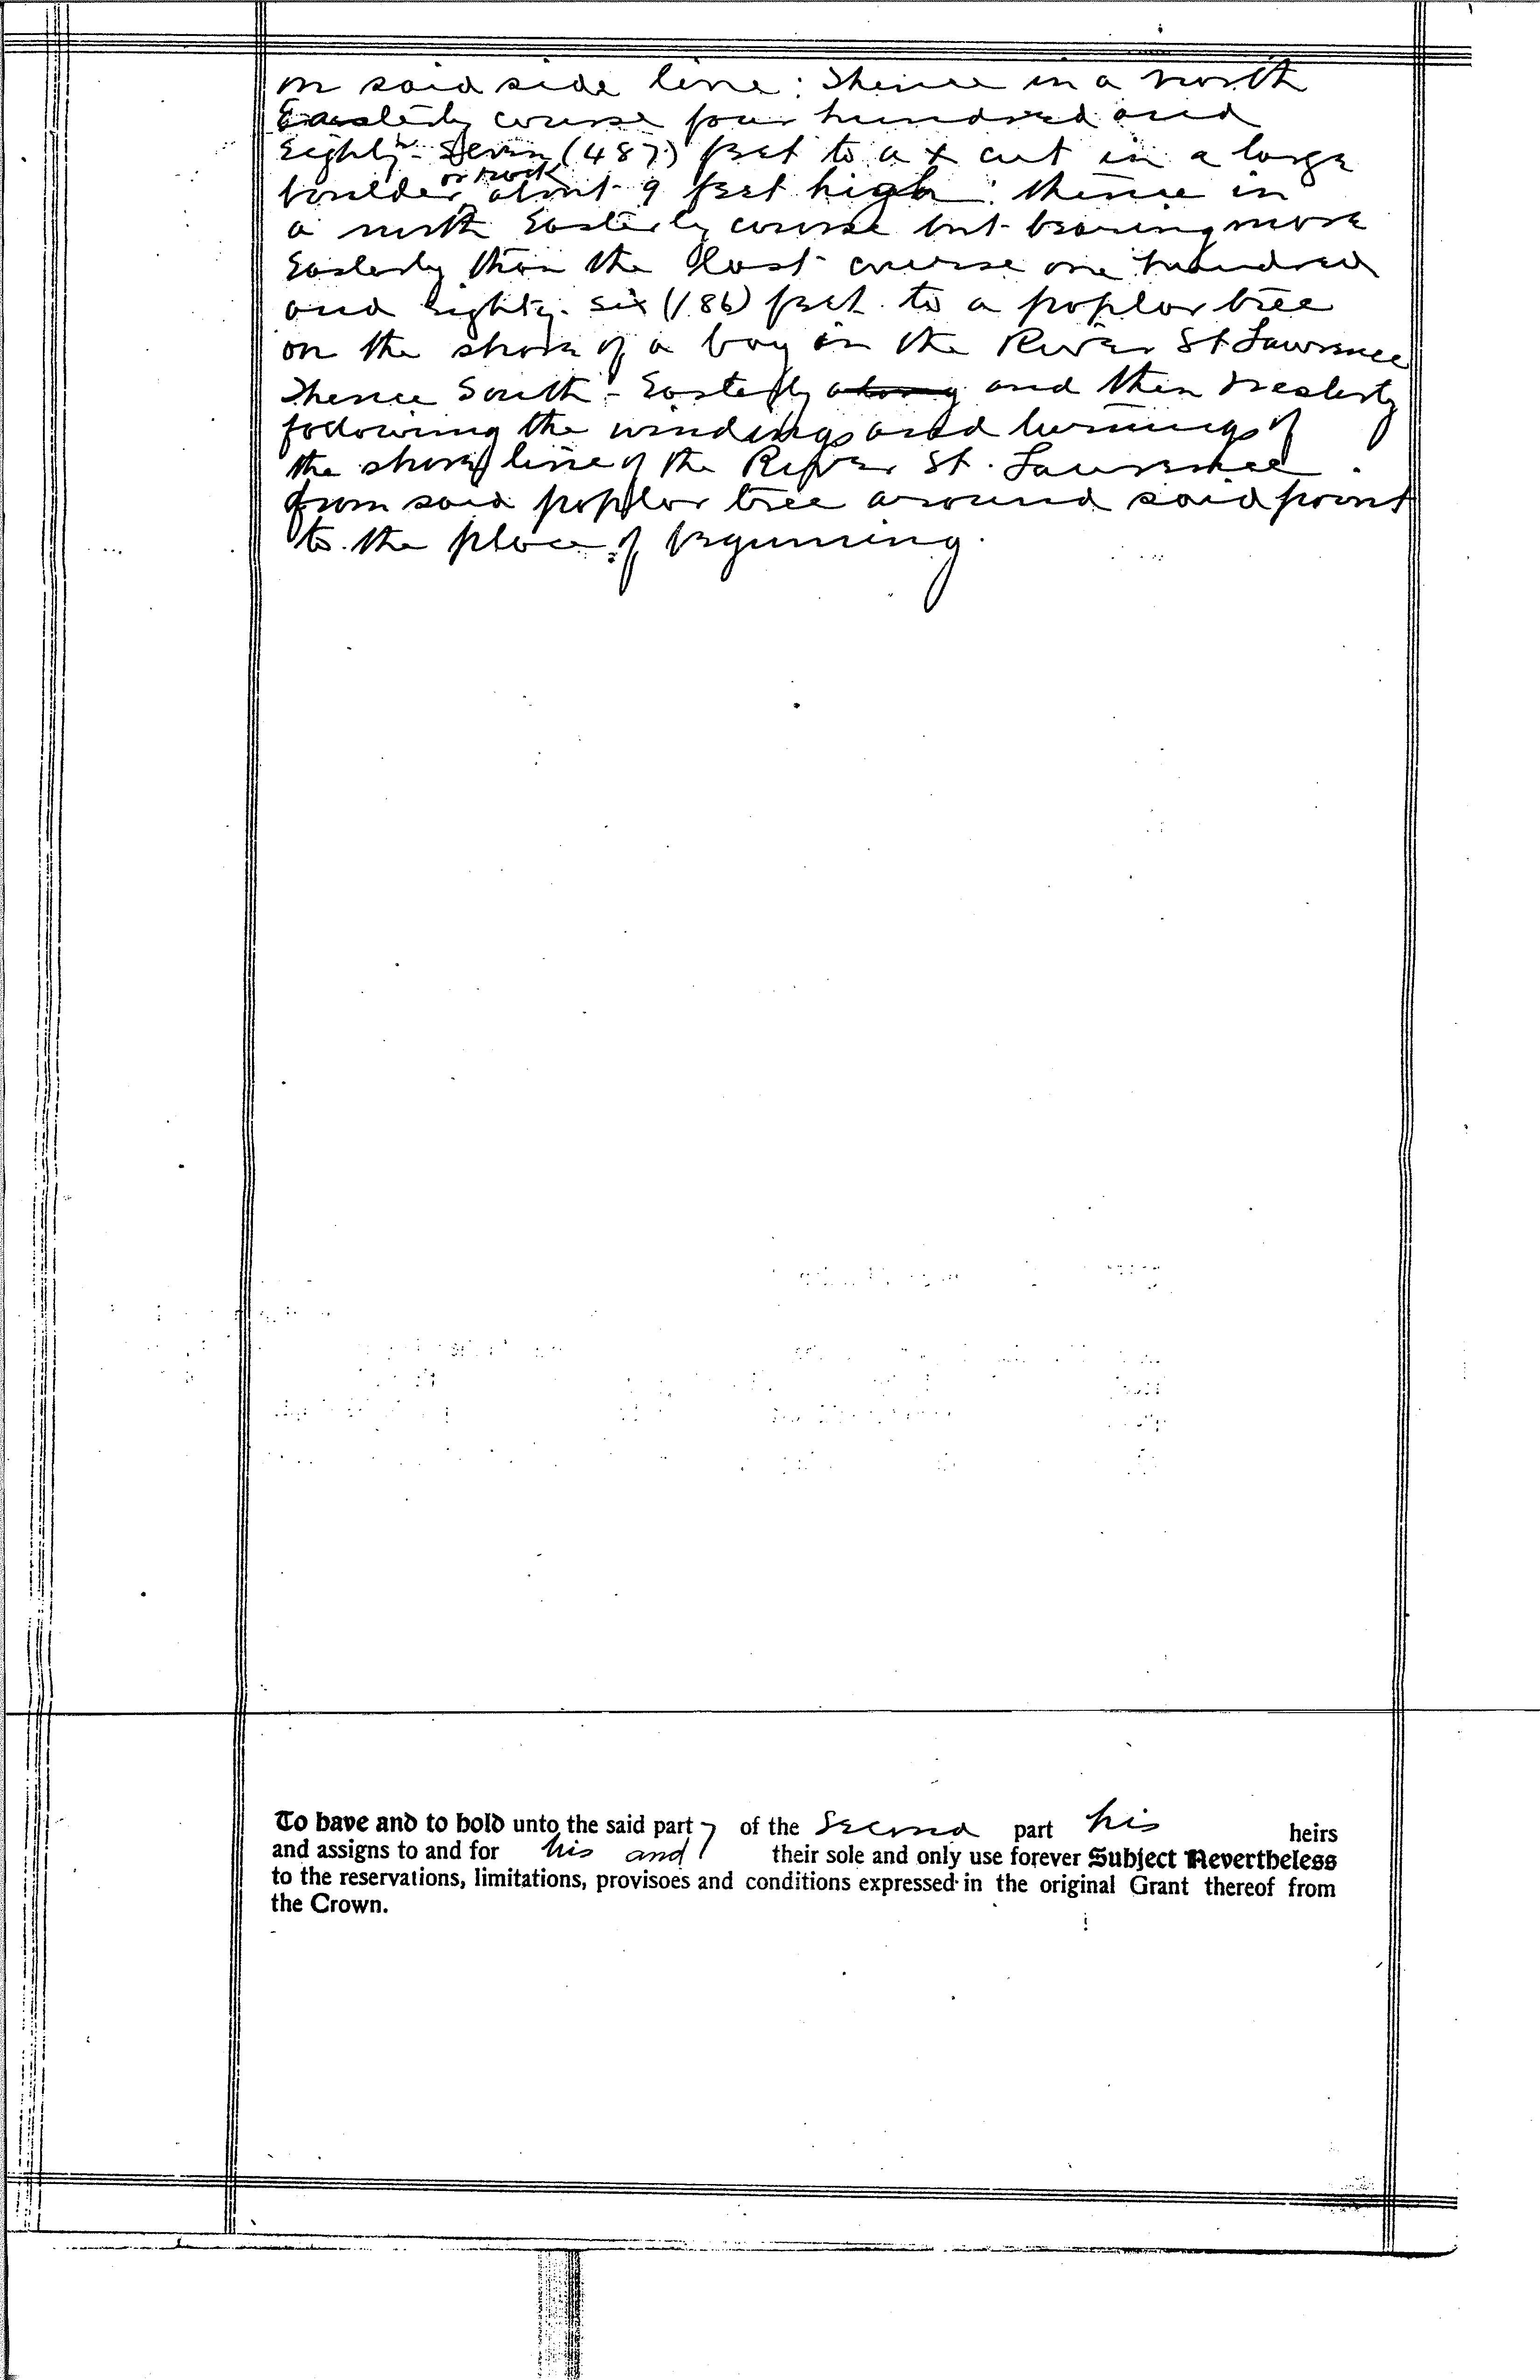 on said side line : Thence in a north
Easterly course four hundred and
Eighty-Seven (487) feet to a x cut in a large
boulder or rock about 9 feet high : thence in
a north Easterly course but bearing more
Easterly than the last course one hundred
and Eighty-six (186) feet to a poplar tree
on the shore of a bay in the River St Lawrence
Thence South-Easterly along and then Westerly
following the windings and turnings of
the shore line of the River St. Lawrence
from said poplar tree around said point
to the place of beginning.
To have and to hold unto the said party of the Second part his heirs
and assigns to and for his and their sole and only use forever Subject Nevertheless
to the reservations, limitations, provisoes and conditions expressed in the original Grant thereof from
the Crown.